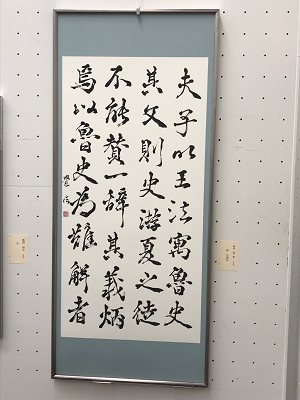 夫子以王法寓魯史
其文則史游夏之徒
不能贊一辞其義炳
焉以魯史為難解者